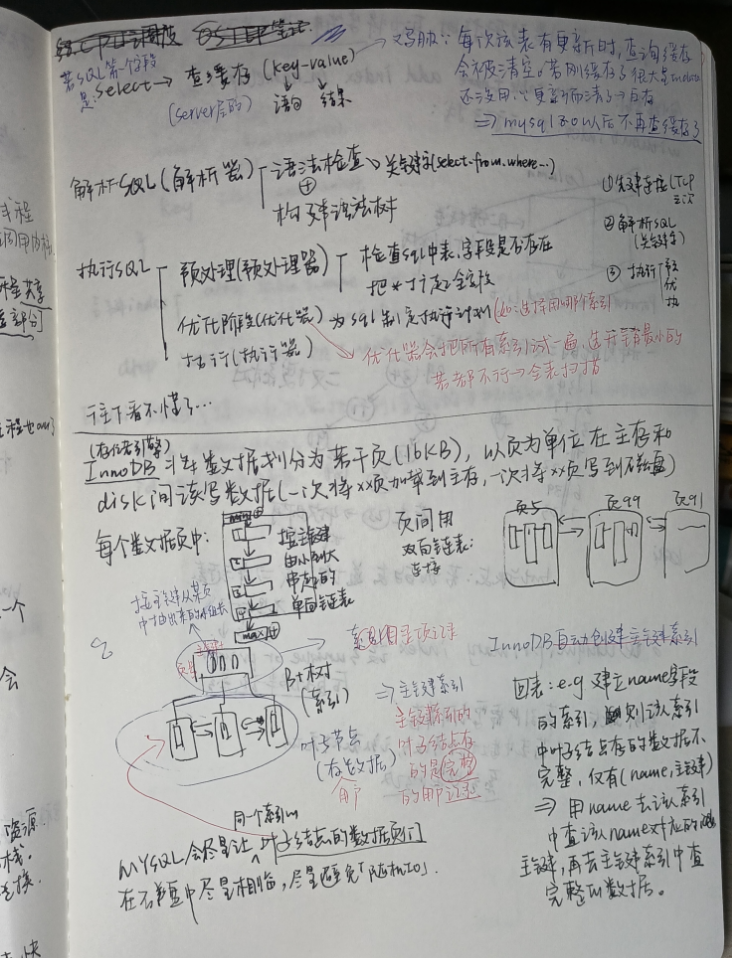 若SQL第一个字段
是select → 查缓存 (key-value)
(server层的)
语句 结果
每次该表有更新时,查询缓存
会被清空。若刚缓存了很大
还没用,
⇒ mysql 8.0以后不再查缓存了
解析SQL(解析器)
语法检查 → 关键字(select.from.where…)
⊕
构建语法树
①先建连接(TCP
三次
②解析SQL
(关键字)
③执行
预
优
执
执行SQL
预处理(预处理器)
检查sql中表,字段是否存在
把*扩展为全字段
优化阶段(优化器) 为sql制定执行计划(如:选择用哪个索引
执行(执行器)
优化器会把所有索引试一遍,选开销最小的
若都不行→全表扫描
往下看不懂了…
(存储引擎)
InnoDB 将数据划分为若干页(16KB),以页为单位在主存和
disk间读写数据(一次将xx页加载到主存,一次将xx页写到磁盘)
每个数据页中:
min
按主键
由小到大
串起的
单向链表
max
页间用
双向链表
连接
页5 页99 页91
按主键从某页
中抽出来的
页号
目录项记录
B+树
(索引)
叶子节点
(存数据)
用户
⇒ 主键索引
主键索引的
叶子结点存
的是完整
的用户记录
InnoDB自动创建主键索引
回表:e.g 建立name字段
的索引,则该索引
中叶子结点存的数据不
完整,仅有(name,主键)
⇒ 用name去该索引
中查该name对应的
主键,再去主键索引中查
完整的数据。
同一个索引的
MYSQL会尽量让 叶子结点的数据页们
在磁盘中尽量相临,尽量避免「随机IO」.